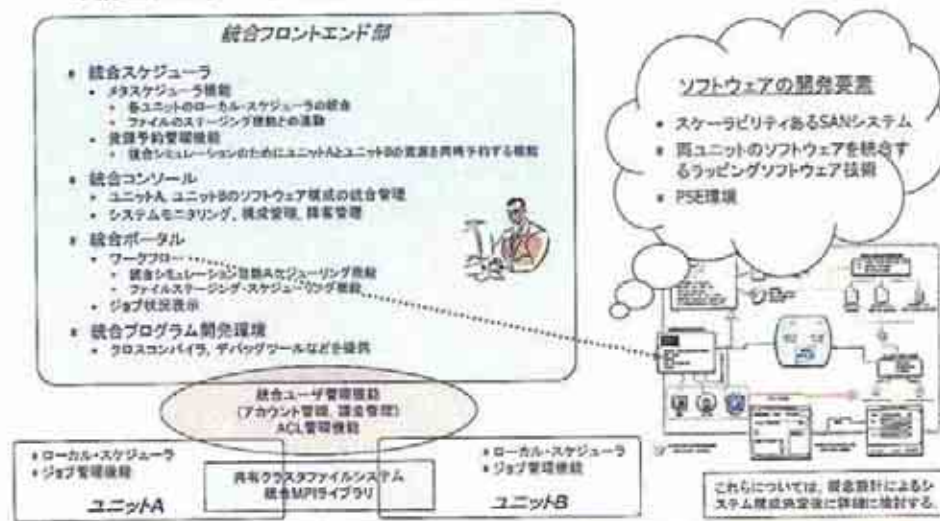 統合フロントエンド部
統合スケジューラ
メタスケジューラ機能
各ユニットのローカル・スケジューラの統合
ファイルのステージング機能との連動
資源予約管理機能
複合シミュレーションのためにユニットAとユニットBの資源を同時予約する機能
統合コンソール
ユニットA, ユニットBのソフトウェア構成の統合管理
システムモニタリング, 構成管理, 障害管理
統合ポータル
ワークフロー
統合シミュレーション
ファイルステージング・スケジューリング機能
ジョブ状況表示
統合プログラム開発環境
クロスコンパイラ, デバッグツールなどを提供
統合ユーザ管理機能
(アカウント管理, 課金管理)
ACL管理機能
ローカル・スケジューラ
ジョブ管理機能
ユニットA
共有クラスタファイルシステム
統合MPIライブラリ
ローカル・スケジューラ
ジョブ管理機能
ユニットB
ソフトウェアの開発要素
スケーラビリティあるSANシステム
両ユニットのソフトウェアを統合す
るラッピングソフトウェア技術
PSE環境
これらについては, 概念設計によるシ
ステム構成決定後に詳細に検討する.